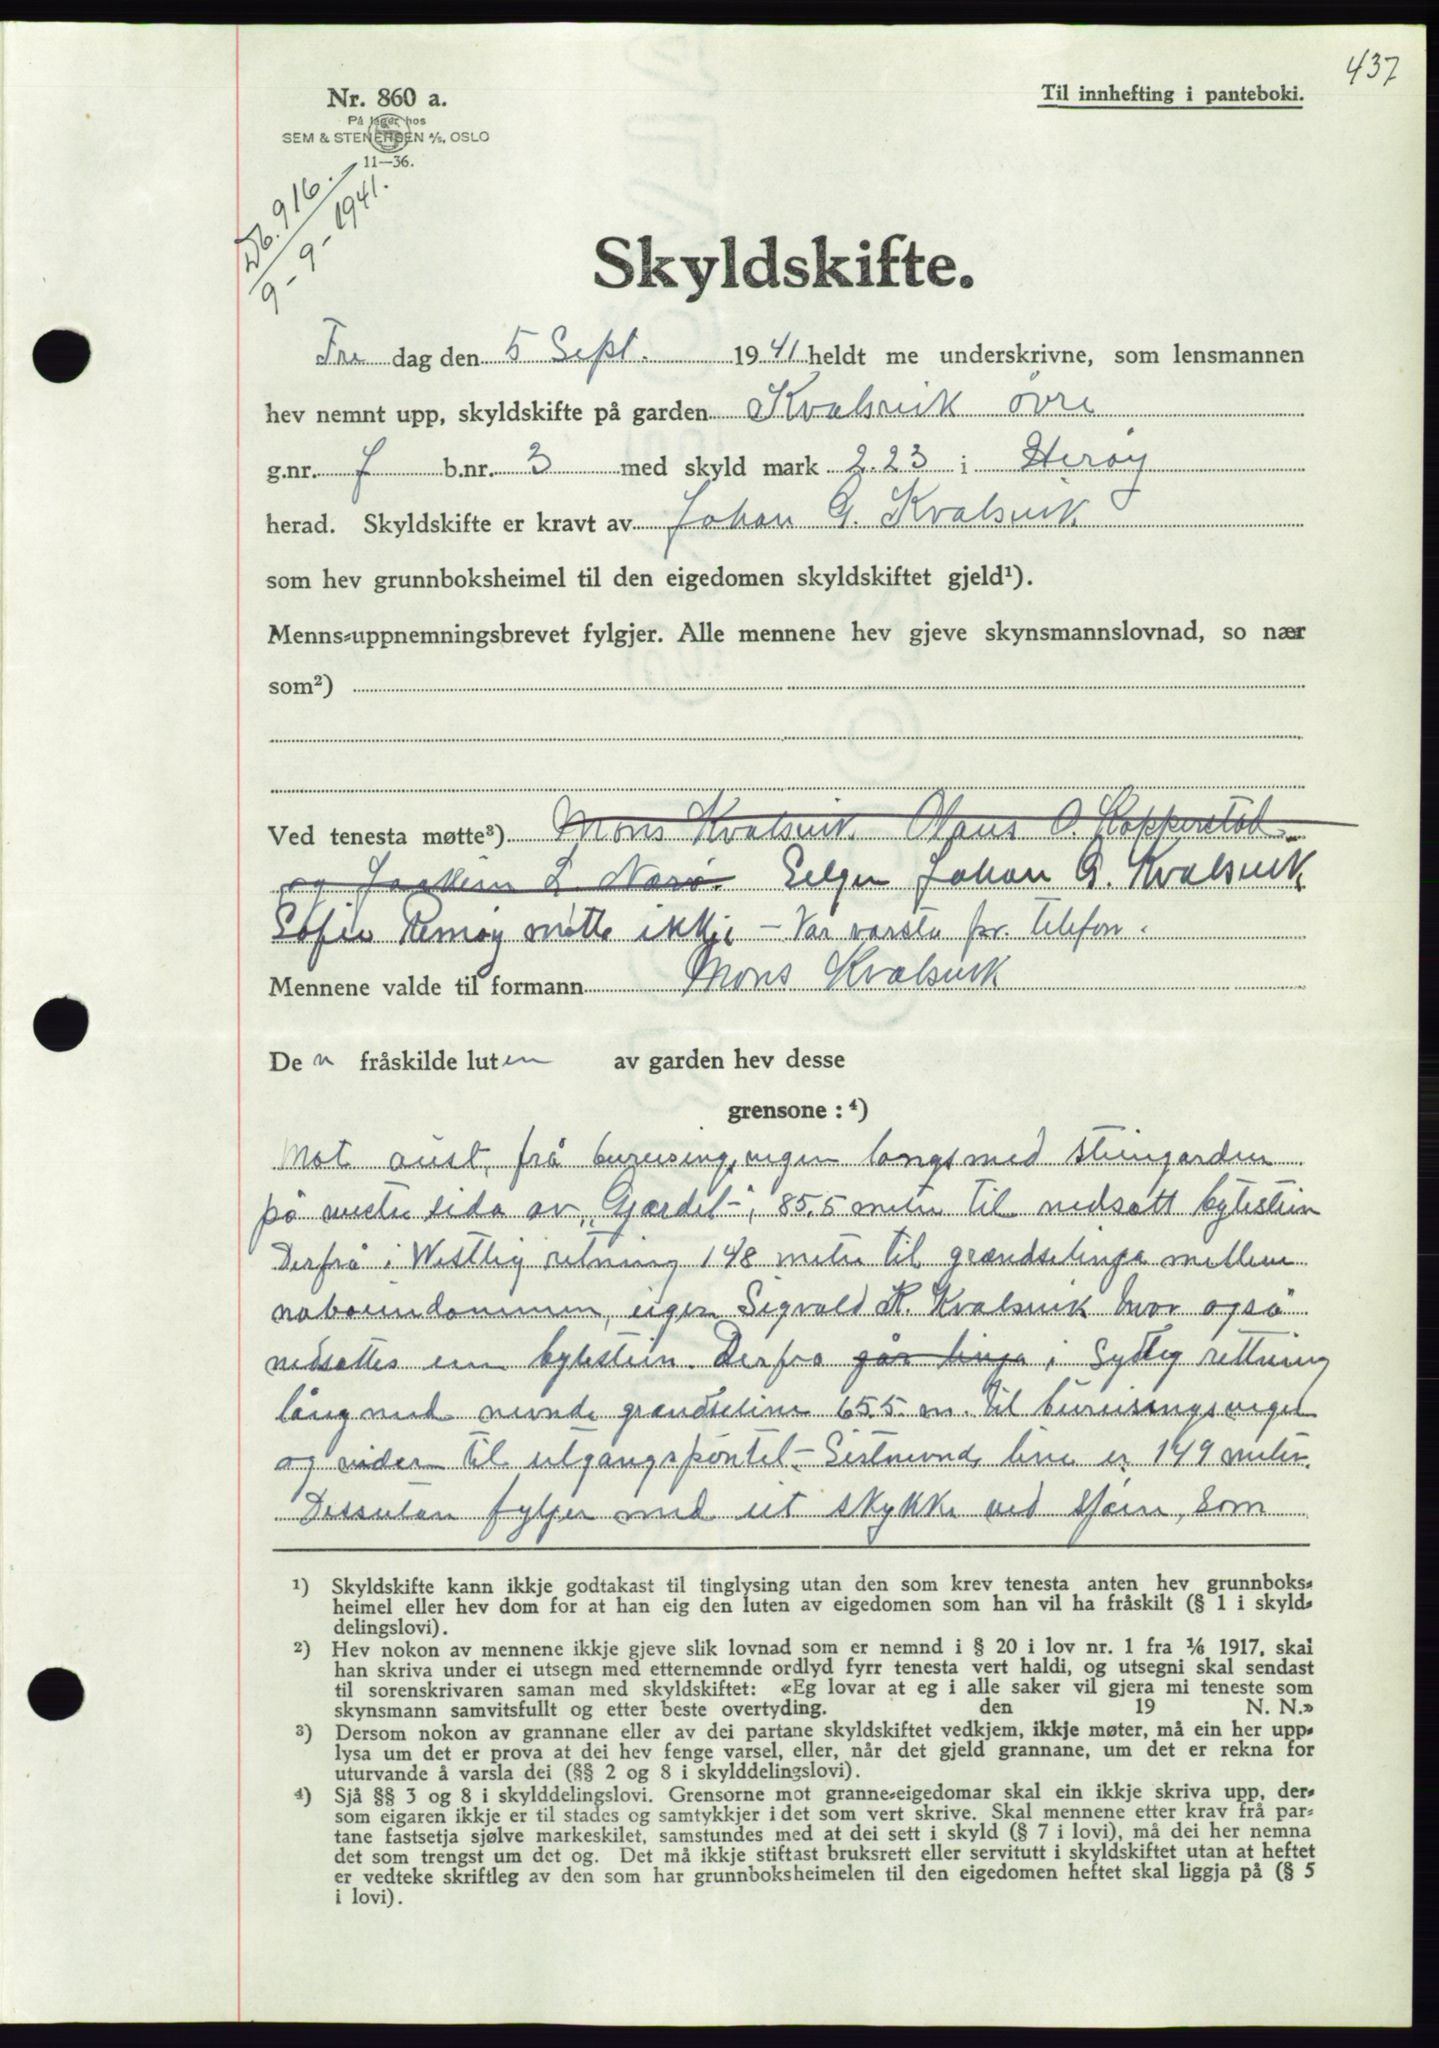 437
Nr. 860 a.
På lager hos
SEM & STENERSEN A/S, OSLO
11—36.
Til innhefting i panteboki.
Db. 916.
9-9-1941.
Skyldskifte.
Fre dag den 5 Sept. 1941 heldt me underskrivne, som lensmannen
hev nemnt upp, skyldskifte på garden Kvalsvik øvre
g.nr. 7 b.nr. 3 med skyld mark 2.23 i Herøy
herad. Skyldskifte er kravt av Johan G. Kvalsvik
som hev grunnboksheimel til den eigedomen skyldskiftet gjeld¹).
Menns-uppnemningsbrevet fylgjer. Alle mennene hev gjeve skynsmannslovnad, so nær
som²)
Ved tenesta møtte³) Mons Kvalsvik Olaus O. Kopperstad
og Joakim L. Nærø. Selger Johan G. Kvalsvik
Sofie Remøy møtte ikkje — Var varsla pr. telefon.
Mennene valde til formann Mons Kvalsvik
De n fråskilde luten av garden hev desse
grensone : ⁴)
Mot aust, frå bureisingsvegen langsmed steingarden
på vestre sida av „Gjærdet", 85,5 meter til nedsatt bytestein
Derfrå i Westlig retning 148 meter til grændselinja mellem
naboeiendommen, eiger Sigvald K. Kvalsvik hvor også
nedsattes ein bytestein. Derfra går linja i Sydlig rettning
lång med nevnde grændseline 65.5. m. til bureisingsvegen
og vider til utgangspontet. Sistnevnde line er 149 meter.
Dessutan fylgjer med eit skykke ved sjøen, som
¹) Skyldskifte kann ikkje godtakast til tinglysing utan den som krev tenesta anten hev grunnboks-
heimel eller hev dom for at han eig den luten av eigedomen som han vil ha fråskilt (§ 1 i skyld-
delingslovi).
²) Hev nokon av mennene ikkje gjeve slik lovnad som er nemnd i § 20 i lov nr. 1 fra 1/6 1917, skal
han skriva under ei utsegn med etternemnde ordlyd fyrr tenesta vert haldi, og utsegni skal sendast
til sorenskrivaren saman med skyldskiftet: «Eg lovar at eg i alle saker vil gjera mi teneste som
skynsmann samvitsfullt og etter beste overtyding. den 19 N. N.»
³) Dersom nokon av grannane eller av dei partane skyldskiftet vedkjem, ikkje møter, må ein her upp-
lysa um det er prova at dei hev fenge varsel, eller, når det gjeld grannane, um det er rekna for
uturvande å varsla dei (§§ 2 og 8 i skylddelingslovi).
⁴) Sjå §§ 3 og 8 i skylddelingslovi. Grensorne mot granne-eigedomar skal ein ikkje skriva upp, der-
som eigaren ikkje er til stades og samtykkjer i det som vert skrive. Skal mennene etter krav frå par-
tane fastsetja sjølve markeskilet, samstundes med at dei sett i skyld (§ 7 i lovi), må dei her nemna
det som trengst um det og. Det må ikkje stiftast bruksrett eller servitutt i skyldskiftet utan at heftet
er vedteke skriftleg av den som har grunnboksheimelen til den eigedomen heftet skal liggja på (§ 5
i lovi).